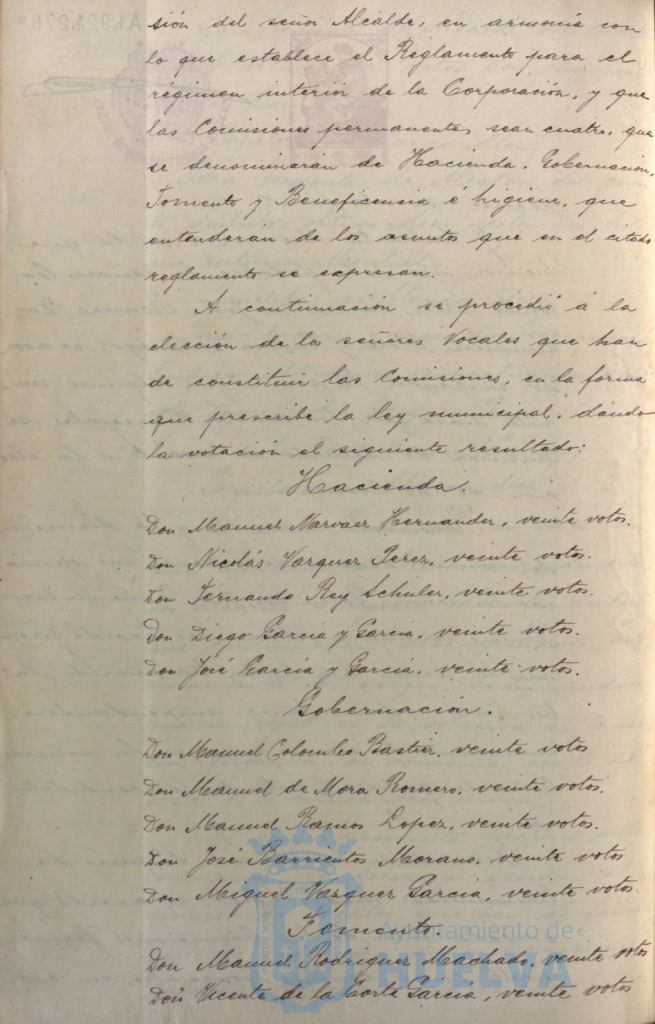 sión del señor Alcalde, en armonía con
lo que establece el Reglamento para el
régimen interior de la Corporación, y que
las Comisiones permanentes sean cuatro, que
se denominarán de Hacienda, Gobernación,
Fomento y Beneficencia é higiene, que
entenderán de los asuntos que en el citado
reglamento se expresan.
A continuación se procedió á la
elección de los señores Vocales que han
de constituir las Comisiones, en la forma
que prescribe la ley municipal, dando
la votación el siguiente resultado:
Hacienda.
Don Manuel Narvaez Hernandez, veinte votos.
Don Nicolás Vazquez Perez, veinte votos.
Don Fernando Rey Schuler, veinte votos.
Don Diego Garcia y Garcia, veinte votos.
Don José Garcia y Garcia, veinte votos.
Gobernación.
Don Manuel Colombo Bastier, veinte votos
Don Manuel de Mora Romero, veinte votos.
Don Manuel Ramos Lopez, veinte votos.
Don José Barrientos Morano, veinte votos
Don Miguel Vazquez Garcia, veinte votos.
Fomento.
Don Manuel Rodriguez Machado, veinte votos
Don Vicente de la Corte Garcia, veinte votos
Ayuntamiento de
HUELVA